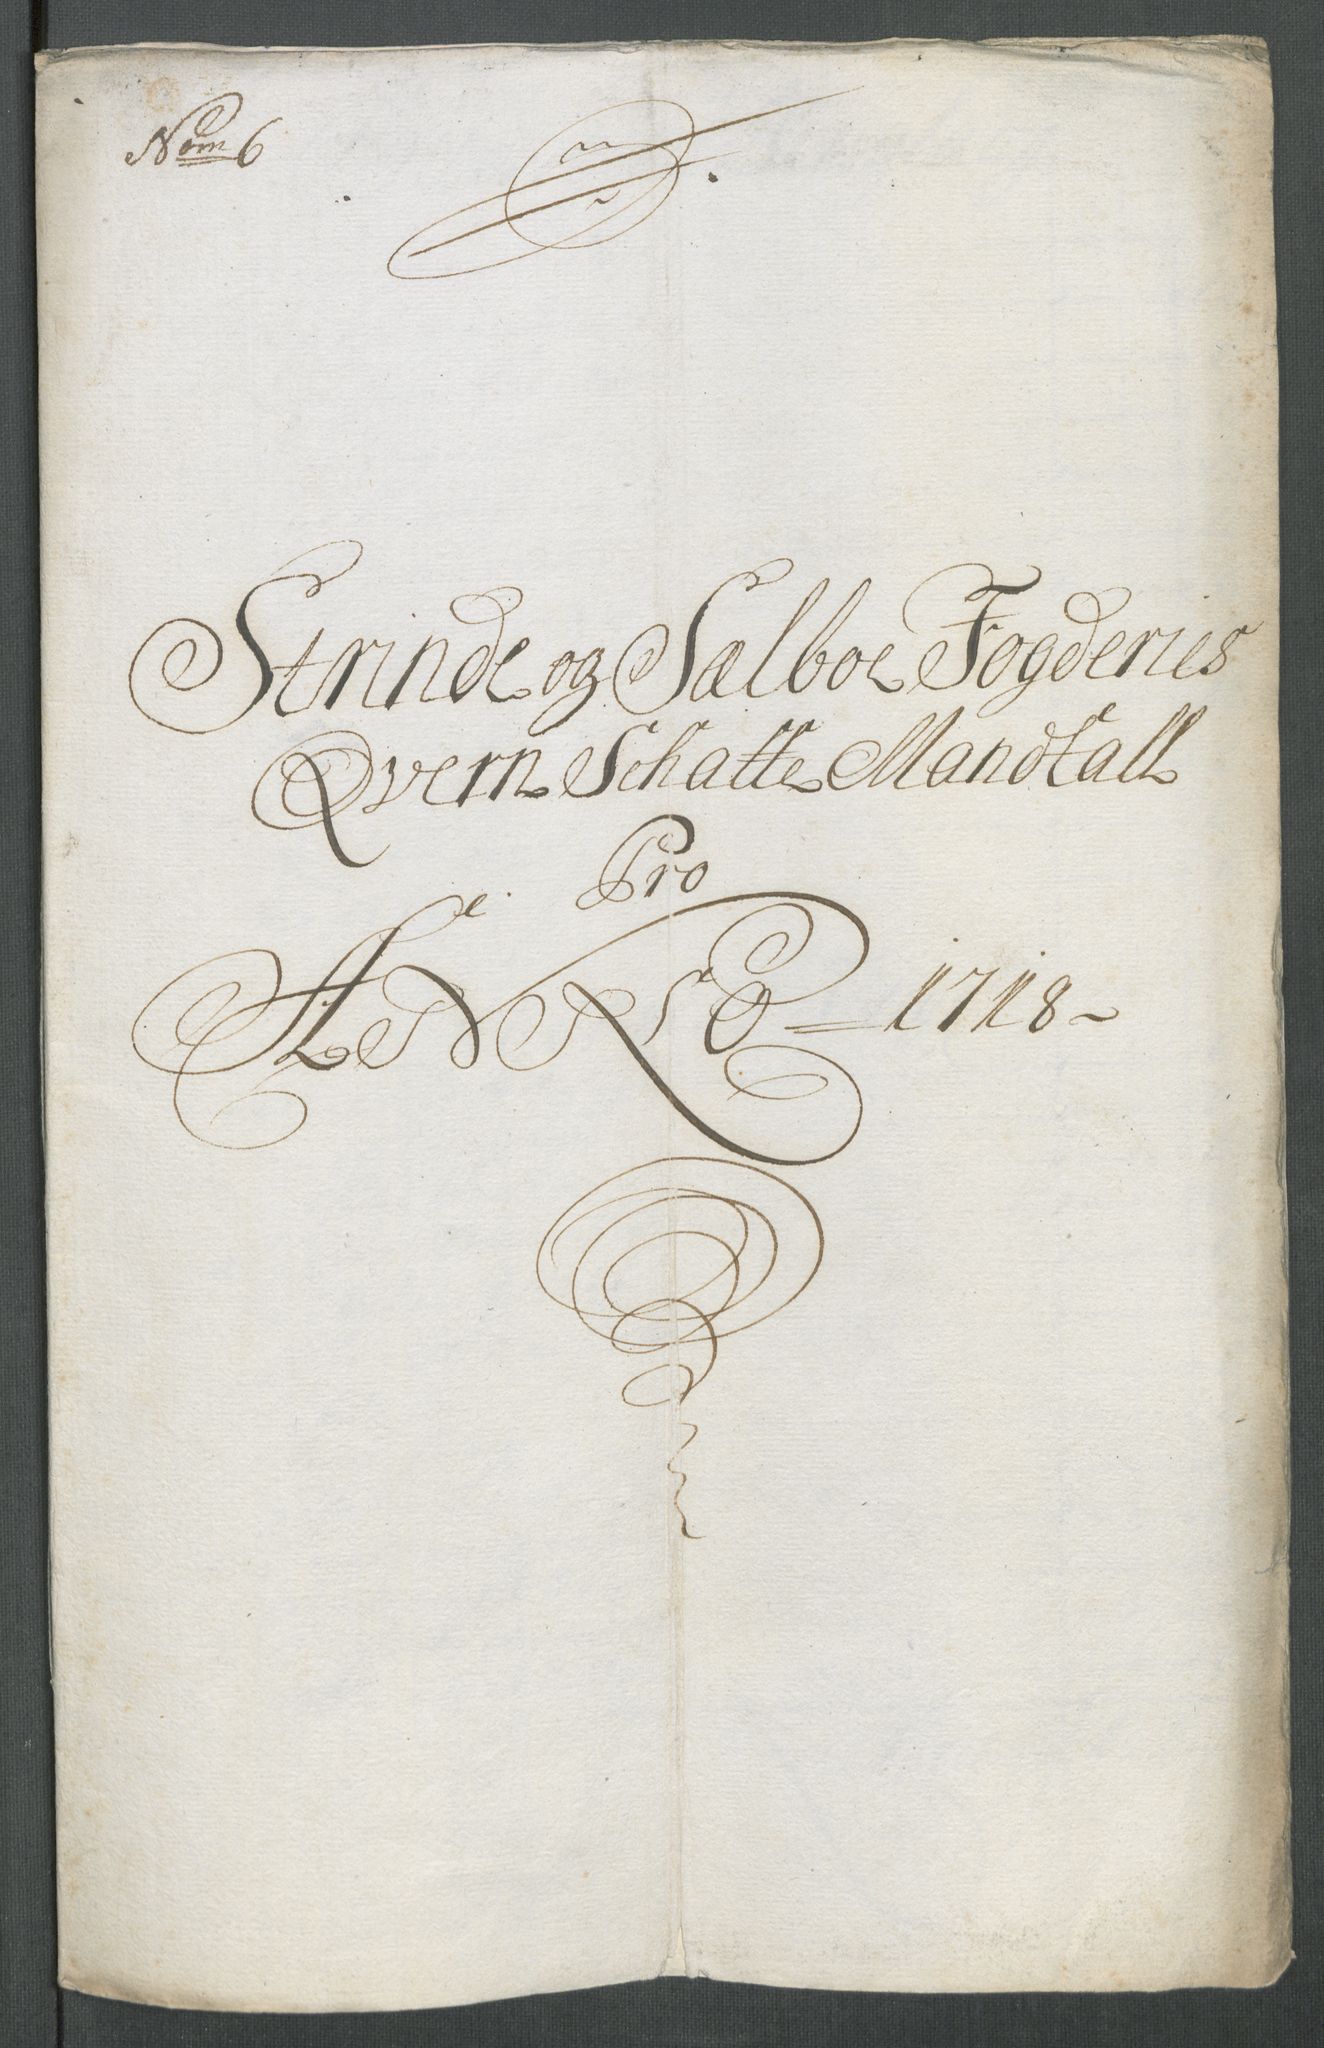 Nom 6
Strinde og Sælboe Fogderies
Qvern Schatte Mandtall
Pro
ANNO 1718